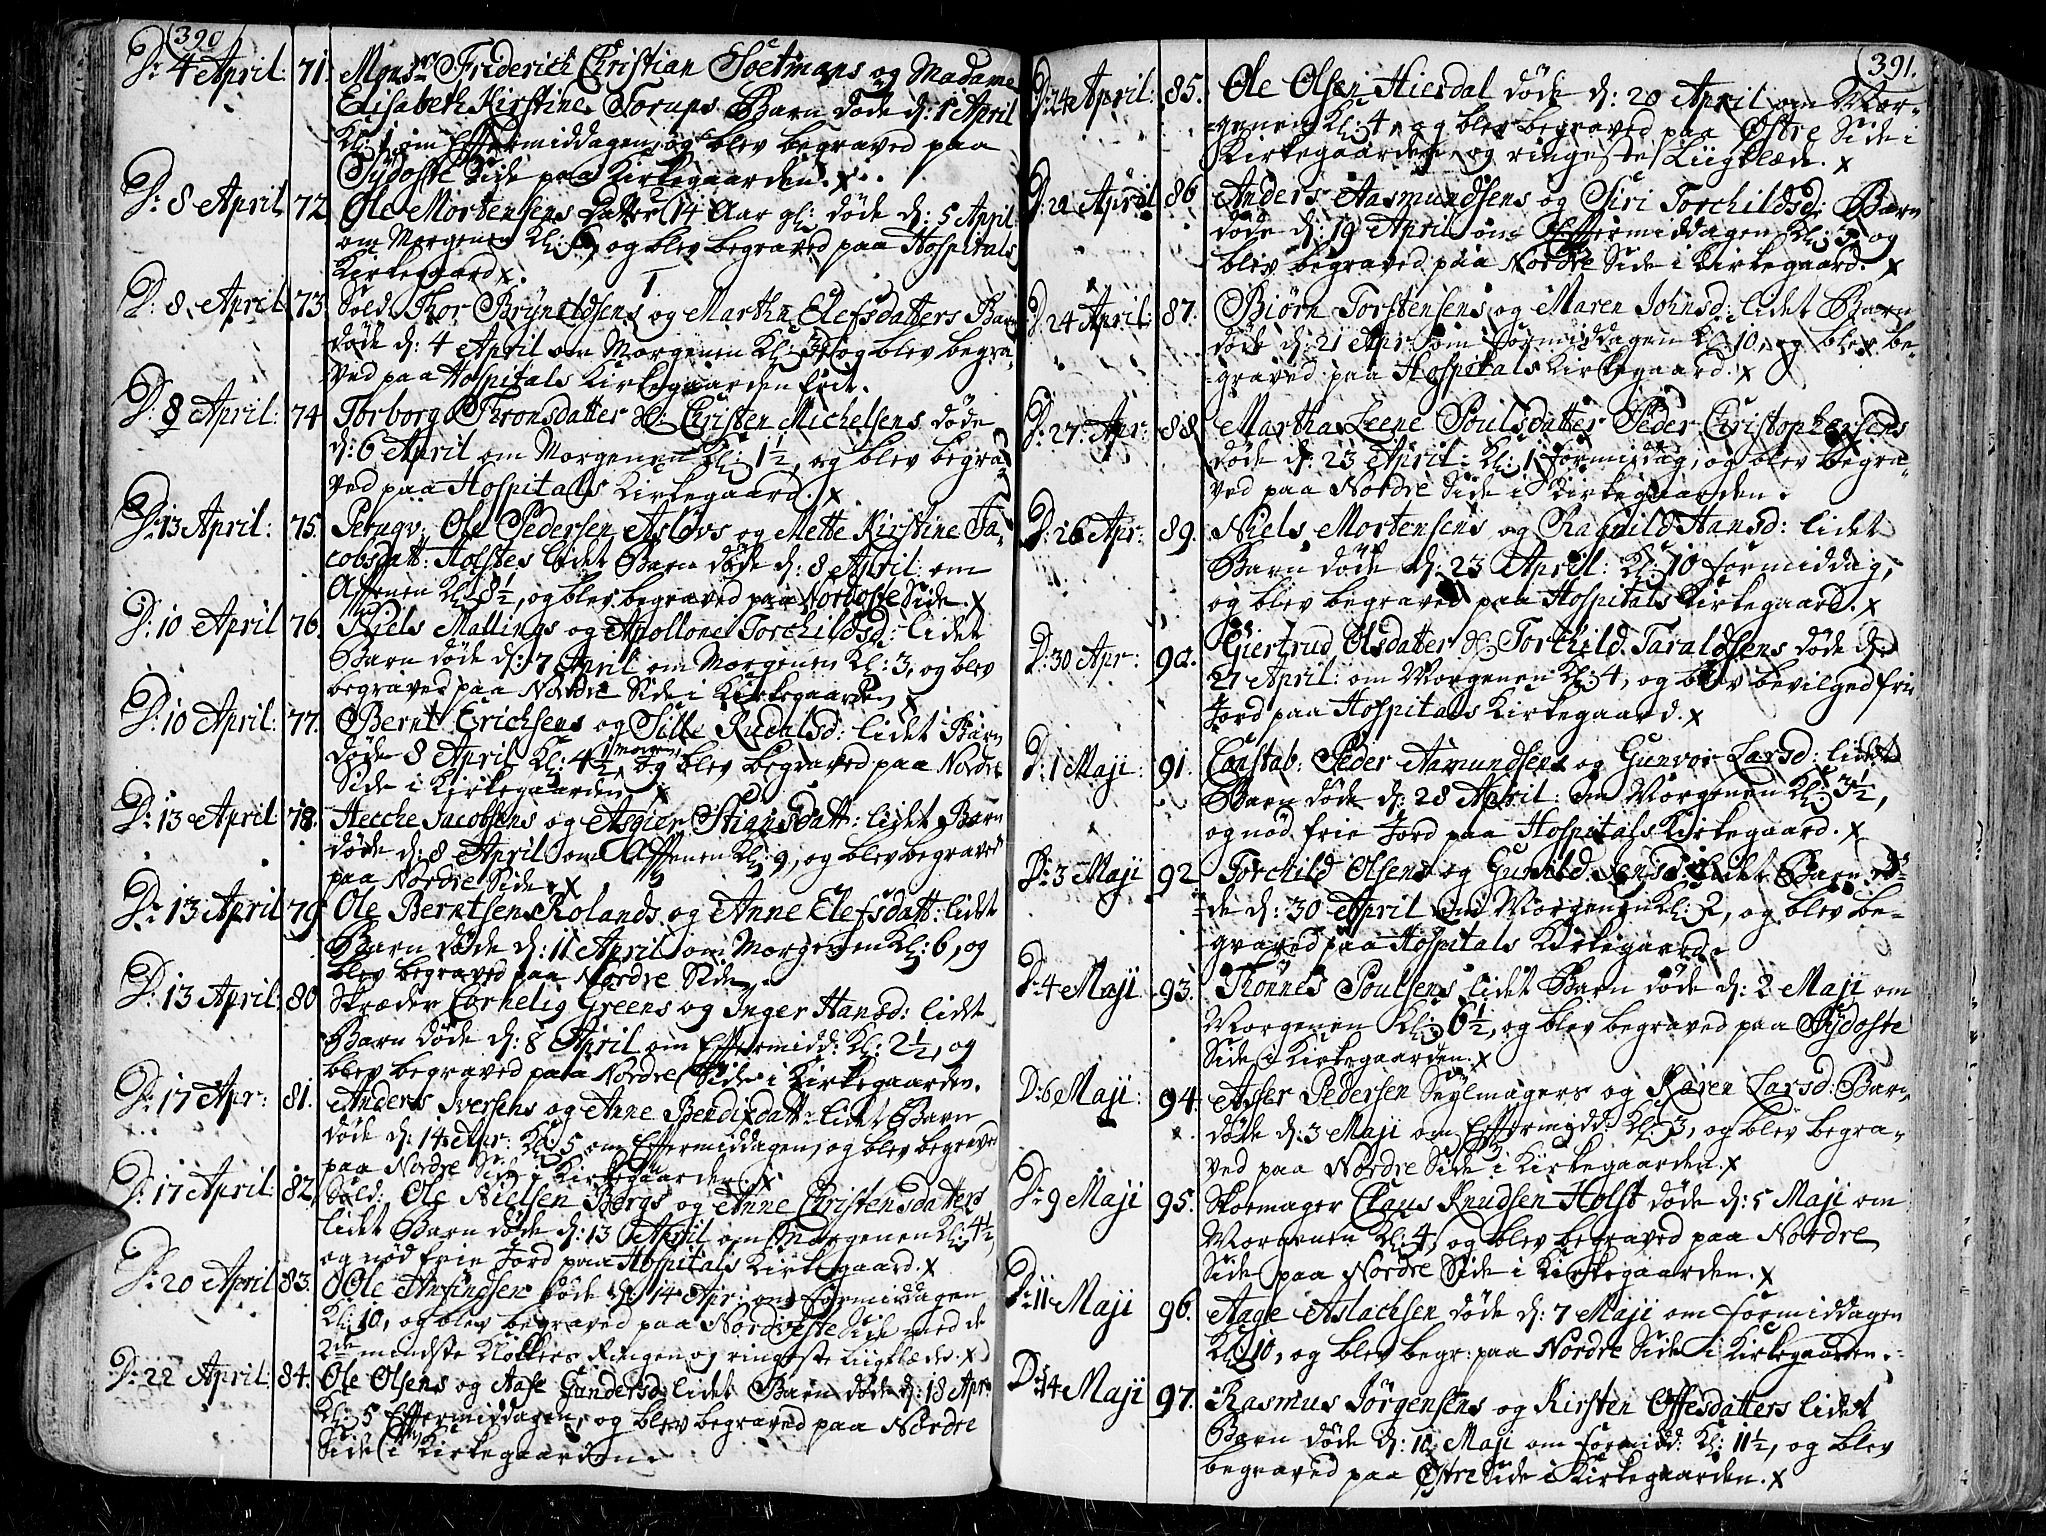 390
D: 4 April: 71. Monsr Friderich Christian Soetmans og Madame
Elisabeth Kirstine Torups Barn døde d: 1 April
Kl: 1 om Efftermiddagen, og blev begraved paa
Sydoste Side paa Kirkegaarden. x
D: 8 April 72 Ole Mortensens Datter 14 Aar gl: døde d: 5 April
om Morgenen Kl: 6, og blev begraved paa Hospitals
Kirkegaard x.
D: 8. April 73. Sold: Thor Bryneldsens og Martha Elefsdatters Barn
døde d: 4 April om Morgenen Kl: 3, og blev begra-
ved paa Hospitals Kirkegaarden frit.
D: 8 April: 74 Torborg Thronsdatter Christen Michelsens døde
d: 6 April om Morgenen Kl: 1½, og blev begra-
ved paa Hospitals Kirkegaard. x
D: 13 April: 75. Ole Pedersen Asløvs og Mette Kirstine Ja-
cobsdatt: Holstes lidet Barn døde d: 8 April om
Afftenen Kl: 8½, og blev begraved paa Nordoste Side. x
D: 10 April 76. Niels Mallings og Apollone Torchildsd: lidet
Barn døde d: 7 April om Morgenen Kl: 3, og blev
begraved paa Nordre Side i Kirkegaarden x
D: 10 April: 77. Bernt Erichsens og Sille lidet Barn
døde 8 April Kl: 4½ morgen, og blev begraved paa Nordre
Side i Kirkegaarden x
D: 13 April: 78. Jacobsens og Stiansdatt: lidet Barn
døde d: 8 April om Afftenen Kl: 9, og blev begraved
paa Nordre Side. x
D: 13 April 79 Ole Berntsens Rolands og Anne Elefsdatt: lidet
Barn døde d: 11 April om Morgenen Kl: 6, og
blev begraved paa Nordre Side.
D: 13 April 80 Skræder Cornelig Greens og Inger Hansd: lidet
Barn døde d: 8 April om Efftermidd: Kl: 2½, og
blev begraved paa Nordre Side i Kirkegaarden.
D: 17 Apr: 81. Anders Iversens og Anne Bendixdatt: lidet Barn
døde d: 14 Apr: Kl: 5 om Efftermiddagen, og blev begraved
paa Nordre Side i Kirkegaarden x
D: 17 April: 82. Sold: Ole Nielsen Bergs og Anne Christensdatters
lidet Barn døde d: 13 April om Morgenen Kl: 4½,
og nød frie Jord paa Hospitals Kirkegaard. x
D: 20 April 83. Ole Anfindsen døde d: 14 Apr: om formiddagen
Kl: 10, og blev begraved paa Nordveste Side med de
2de mindste Klokkers Ringen og ringeste Liigklæde. x
D: 22 April: 84. Ole Olsens og Aase Gundersd: lidet Barn døde d: 18 Apr:
Kl: 5 Efftermiddagen, og blev begraved paa Nordre
Side i Kirkegaarden.
391.
D: 24 April: 85. Ole Olsen Hierdal døde d: 20 April om Mor-
genen Kl: 4, og blev begraved paa Østre Side i
Kirkegaarden, og ringeste Liigklæde. x
D: 22 April 86 Anders Aasmundsens og Siri Torchildsd: Barn
døde d: 19 April om Efftermiddagen Kl: 3, og
blev begraved paa Nordre Side i Kirkegaard. x
D: 24 April: 87. Biørn Torstensens og Maren Johnsd: lidet Barn
døde d: 21 Apr: om formiddagen Kl: 10, og blev be-
graved paa Hospitals Kirkegaard. x
D: 27. Apr: 88 Martha Leene Poulsdatter Peder Christophersens
døde d: 23 April: Kl: 1 formiddag, og blev begra-
ved paa Nordre Side i Kirkegaarden.
D: 26 Apr: 89. Niels Mortensens og Ragnild Hansd: lidet
Barn døde d: 23 April: Kl: 10 formiddag,
og blev begraved paa Hospitals Kirkegaard. x
D: 30 Apr: 90. Giertrud Olsdatter Torkild Taraldsens døde d:
27 April: om Morgenen Kl: 4, og blev bevilged fri
Jord paa Hospitals Kirkegaard. x
D: 1 Maji: 91. Constab: Peder Aamundsens og Gunvor Larsd: lidet
Barn døde d: 28 April: om Morgenen Kl: 3½,
og nød frie Jord paa Hospitals Kirkegaard. x
D: 3 Maji 92 Torchild Olsens og Gunild Jensd: lidet Barn dø-
de d: 30 April om Morgenen Kl: 2, og blev be-
graved paa Hospitals Kirkegaard.
D: 4 Maji 93. Tønnes Poulsens lidet Barn døde d: 2 Maji om
Morgenen Kl: 6½, og blev begraved paa Sydoste
Side i Kirkegaarden. x
D: 6 Maji: 94. Asser Pedersen Seylmagers og Karen Larsd: Barn
døde d: 3 Maji om Efftermidd: Kl: 3, og blev begra-
ved paa Nordre Side i Kirkegaarden. x
D: 9 Maji 95. Skoemager Claus Knudsen Holst døde d: 5 Maji om
Morgenen Kl: 4, og blev begraved paa Nordre
Side paa Nordre Side i Kirkegaarden. x
D: 11 Maji 96. Aage Aslachsen døde d: 7 Maji om formiddagen
Kl: 10, og blev begr: paa Nordre Side i Kirkegaarden.
D: 14 Maji 97. Rasmus Jørgensens og Kirsten Offesdatters lidet
Barn døde d: 10 Maji om formidd: Kl: 11½, og blev
begraved paa Østre Side i Kirkegaarden. x